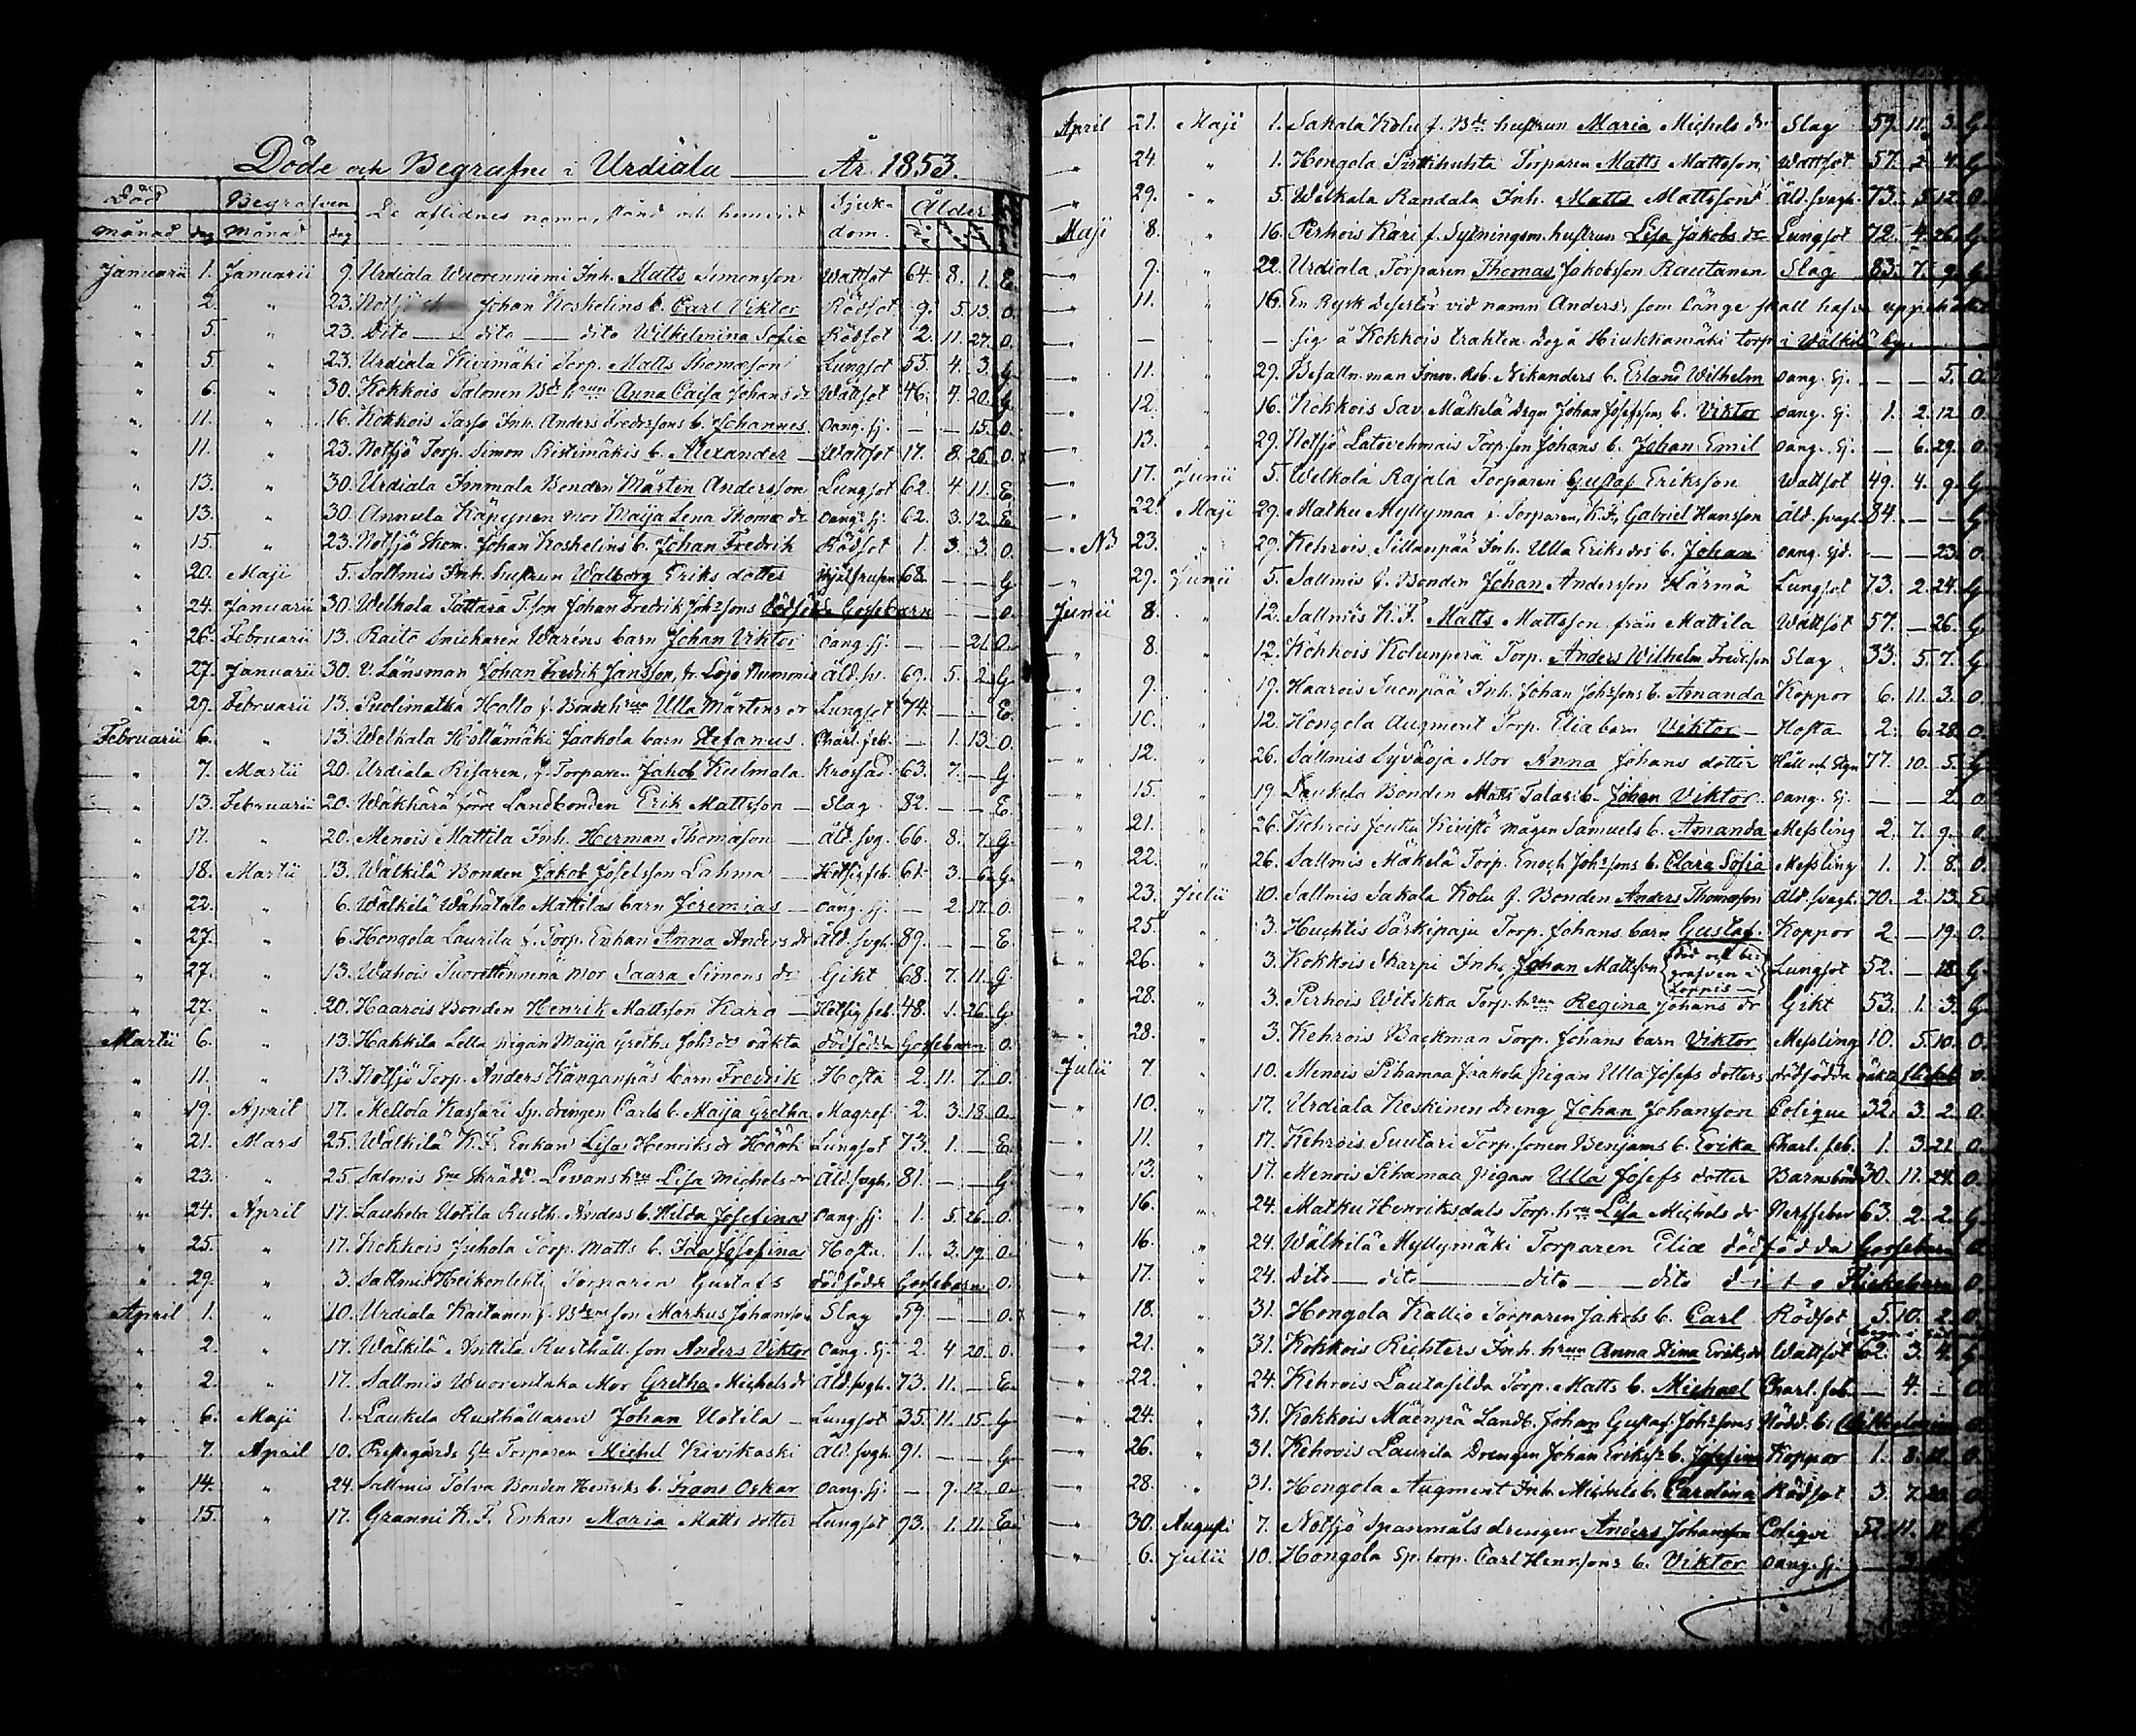 Döde och Begrafne i Urdiala År 1853.
Död Begrafven De aflidnes namn, stånd och hemvist Sjuk- Ålder
Månad dag Månad dag dom.
Januarii 1. Januarii 9. Urdiala Wuorenniemi Inh. Matts Simonsson Wattsot 64. 8. 1. E.
" 2. " 23. Notsjö Johan Koskelins b. Carl Viktor Rödsot 9. 5. 13. O.
" 5. " 23. Dito dito dito Wilhelmina Sofia Rödsot 2. 11. 27. O.
" 5. " 23. Urdiala Kivimäki Torp. Matts Thomasson Lungsot 55. 4. 3. G.
" 6. " 30. Kokkois Salonen Bde hrun Anna Caisa Johans dr Wattsot 46. 4. 20. G.
" 11. " 16. Kokkois Sasso Inh. Anders Fredrssons b. Johannes oang. sj. — — 15. O.
" 11. " 23. Notsjö Torp. Simon Ristimäkis b. Alexander — Wattsot 17. 8. 26. O.
" 13. " 30. Urdiala Immala Bonden Mårten Andersson Lungsot 62. 4. 11. E.
" 13. " 30. Annula Käpynen mor Maija Lena Thomæ dr oang. sj. 62. 3. 12. E.
" 15. " 23. Notsjö Johan Koskelins b. Johan Fredrik Rödsot 1. 3. 3. O.
" 20. Maji 5. Sallmis Inh. hustrun Walborg Eriks dotter Ihjälfrusen 68. — — G.
" 24. Januarii 30. Welhola Tattara T.son Johan Fredrik Johssons dödfödt Gossebarn — O.
" 26. Februarii 13. Raito Snickaren Waréns barn Johan Viktor oang. sj. — — 21. O.
" 27. Januarii 30. V. Länsman Johan Fredrik Jansson, fr. Lojo Nummis Åld. sv. 69. 5. 2. G.
" 29. Februarii 13. Puolimatka Hollo f. Bonde hrun Ulla Mårtens dr Lungsot 74. — — E.
Februarii 6. " 13. Welkala Kollämäki Jaakola barn Stefanus Charl. feb. — 1. 13. O.
" 7. Martii 20. Urdiala Risaren, f. Torparen Jakob Kulmala Krossad 63. 7. — G.
" 13. Februarii 20. Wäkhärä förre Landbonden Erik Mattsson — Slag 82. — — E.
" 17. " 20. Menois Mattila Inh. Herman Thomasson — Åld. svg. 66. 8. 7. G.
" 18. Martii 13. Wälkilä Bonden Jakob Josefsson Lahma — Hetsig feb. 61. 3. 6. G.
" 22. " 6. Wälkilä Wähätalo Mattilas barn Jeremias — oang. sj. — 2. 17. O.
" 27. " 6. Hongola Laurila f. Torp. Enkan Anna Anders dr Åld. svgh. 89. — — E.
" 27. " 13. Wahois mor Saara Simons dr Gikt 68. 7. 11. G.
" 27. " 20. Haarois Bonden Henrik Mattsson Karo — Hetsig feb. 48. 1. 26. G.
Martii 6. " 13. Hakkila Lella pigan Maija Greths Johs drs oäkta dödfödda Gossebarn O.
" 11. " 13. Notsjö Torp. Anders Känganpäs barn Fredrik Hosta 2. 11. 7. O.
" 19. April 17. Mellola Kassari Sp. drengen Carls b. Maija Gretha Magref 2. 3. 18. O.
" 21. Mars 25. Wälkilä K.F. Enkan Lisa Henriks dr Höök Lungsot 73. 1. — E.
" 23. " 25. Salmis Levans hru Lisa Michels dr Åld. svgh. 81. — — G.
" 24. April 17. Laukela Uotila Rusth. Anders b. Hilda Josefina oang. sj. 1. 5. 26. O.
" 25. " 17. Kokkois Juhola Torp. Matts b. Ida Josefina Hosta 1. 3. 19. O.
" 29. " 3. Sallmis Heikonlehti Torparen Gustafs dödfödde Gossebarn O.
April 1. " 10. Urdiala Kaitanen f. Bdens son Markus Johansson Slag 59. — — O.
" 2. " 17. Wälkilä Anttila Rusthåll. son Anders Viktor oang. sj. 2. 4. 20. O.
" 2. " 17. Sallmis Wuorentaka Mor Gretha Michels dr Åld. svgh. 73. 11. — E.
" 6. Maji 1. Laukela Rusthållaren Johan Uotila — Lungsot 35. 11. 15. G.
" 7. April 10. Prestegårds Torparen Michel Kivikoski Åld. svgh. 91. — — G.
" 14. " 24. Sallmis Tolva Bonden Henriks b. Frans Oskar oang. sj. — 9. 12. O.
" 15. " 17. Granni K.F. Enkan Maria Matts dotter Lungsot 73. 1. 11. E.
April 21. Maji 1. Sakala Kolu f. Bde hustrun Maria Michels dr Slag 59. 11. 3. G.
" 24. " 1. Hongola Torparen Matts Mattsson Wattsot 57. 2. 4. G.
" 29. " 5. Welkala Randala Inh. Matts Mattsson Åld. svagh. 73. 5. 12. O.
Maji 8. " 16. Perhois Kari f. Sytningsm. hustrun Lisa Jakobs dr Lungsot 72. 4. 26. G.
" 9. " 22. Urdiala Torparen Thomas Jakobsson Rautanen Slag 83. 7. 9. G.
" 11. " 16. En Rysk Desertör vid namn Anders, som länge skall hafva uppehållit
" — — sig å Kokkois trakten dog å Hiukkamäki torp i Wälkilä by.
" 11. " 29. Befalln. man Nikanders b. Erland Wilhelm oang. sj. — — 5. O.
" 12. " 16. Kokkois Sav. Mäkelä drgn Johan Josefssons b. Viktor oang. sj. 1. 2. 12. O.
" 13. " 29. Notsjö Torp. son Johans b. Johan Emil oang. sj. — 6. 29. O.
" 17. Junii 5. Welkala Rajala Torparen Gustaf Eriksson Wattsot 49. 4. 9. G.
" 22. Maji 29. Matku Myllymaa f. Torparen, K.F., Gabriel Hansson Åld. svagh. 84. — — G.
" NB 23. " 29. Kehrois Sillanpää Inh. Ulla Eriks drs b. Johan oang. sjd. — — 23. O.
" 29. Junii 5. Sallmis f. Bonden Johan Andersson Härmä Lungsot 73. 2. 24. G.
Junii 8. " 12. Sallmis K.F. Matts Mattsson från Mattila Wattsot 57. — 26. G.
" 8. " 12. Kokkois Kolunperä Torp. Anders Wilhelm Fredrsson Slag 33. 5. 7. G.
" 9. " 19. Haarois Suonpää Inh. Johan Johssons b. Amanda Koppor 6. 11. 3. O.
" 10. " 12. Hongola Augment Torp. Elia barn Viktor — Hosta 2. 6. 28. O.
" 12. " 26. Sallmis Syväoja Mor Anna Johans dotter Håll och Stgn 77. 10. 5. G.
" 15. " 19. Laukela Bonden Matts Talas b. Johan Viktor oang. sj. — — 2. O.
" 21. " 26. Kehrois Kivistö mågen Samuels b. Amanda Messling 2. 7. 9. O.
" 22. " 26. Sallmis Mäkelä Torp. Enoch Johssons b. Clara Sofia Messling 1. 1. 8. O.
" 23. Julii 10. Sallmis Sakala Kolu f. Bonden Anders Thomasson Åld. svagh. 70. 2. 13. E.
" 25. " 3. Huhtis Särkipaju Torp. Johans barn Gustaf. Koppor 2. — 19. O.
" 26. " 3. Kokkois Skarpi Inh. Johan Mattsson (död och begrafven i Loppis —) Lungsot 52. — 18. G.
" 28. " 3. Perhois Witikka Torp. hrun Regina Johans dr Gikt 53. 1. 3. G.
" 28. " 3. Kehrois Backman Torp. Johans barn Viktor Messling 10. 5. 10. O.
Julii 7. " 10. Menois Pihamaa Jaakola Pigan Ulla Josefs dotters dödfödda oäkta O.
" 10. " 17. Urdiala Keskinen Dreng Johan Johansson Colique 32. 3. 2. O.
" 11. " 17. Kehrois Suutari Torp. sonen Benjams b. Erika Charl. feb. 1. 3. 21. O.
" 13. " 17. Menois Pihamaa Pigan Ulla Josefs dotter Barnsbörd 30. 11. 24. O.
" 16. " 24. Matku Henriksdals Torp. hru Lisa Michels dr Nerffeber 63. 2. 2. G.
" 16. " 24. Wälkilä Myllymäki Torparen Eliæ dödfödda Gossebarn O.
" 17. " 24. Dito — dito — dito — dito dito Flickebarn O.
" 18. " 31. Hongola Kallio Torparen Jakobs b. Carl Rödsot 5. 10. 2. O.
" 21. " 31. Kokkois Richters Inh. hrun Anna Stina Eriks dr Wattsot 62. 3. 4. G.
" 22. " 24. Kehrois Lautasilda Torp. Matts b. Michael Charl. feb. — 4. — O.
" 24. " 31. Kokkois Mäenpä Landb. Johan Gustaf Johssons Nödd. b. Wilhelmina O.
" 26. " 31. Kehrois Laurila Drengen Johan Erikss. b. Josefina Koppor 1. 8. O.
" 28. " 31. Hongola Augment Inh. Michels b. Carolina Rödsot 3. 7. 20. O.
" 30. Augusti 7. Notsjö Spanmåls drengen Anders Johansson Coliqve 52. 11. 11. G.
" 6. Julii 10. Hongola Sp. torp. Carl Henr.sons b. Viktor oang. sj.